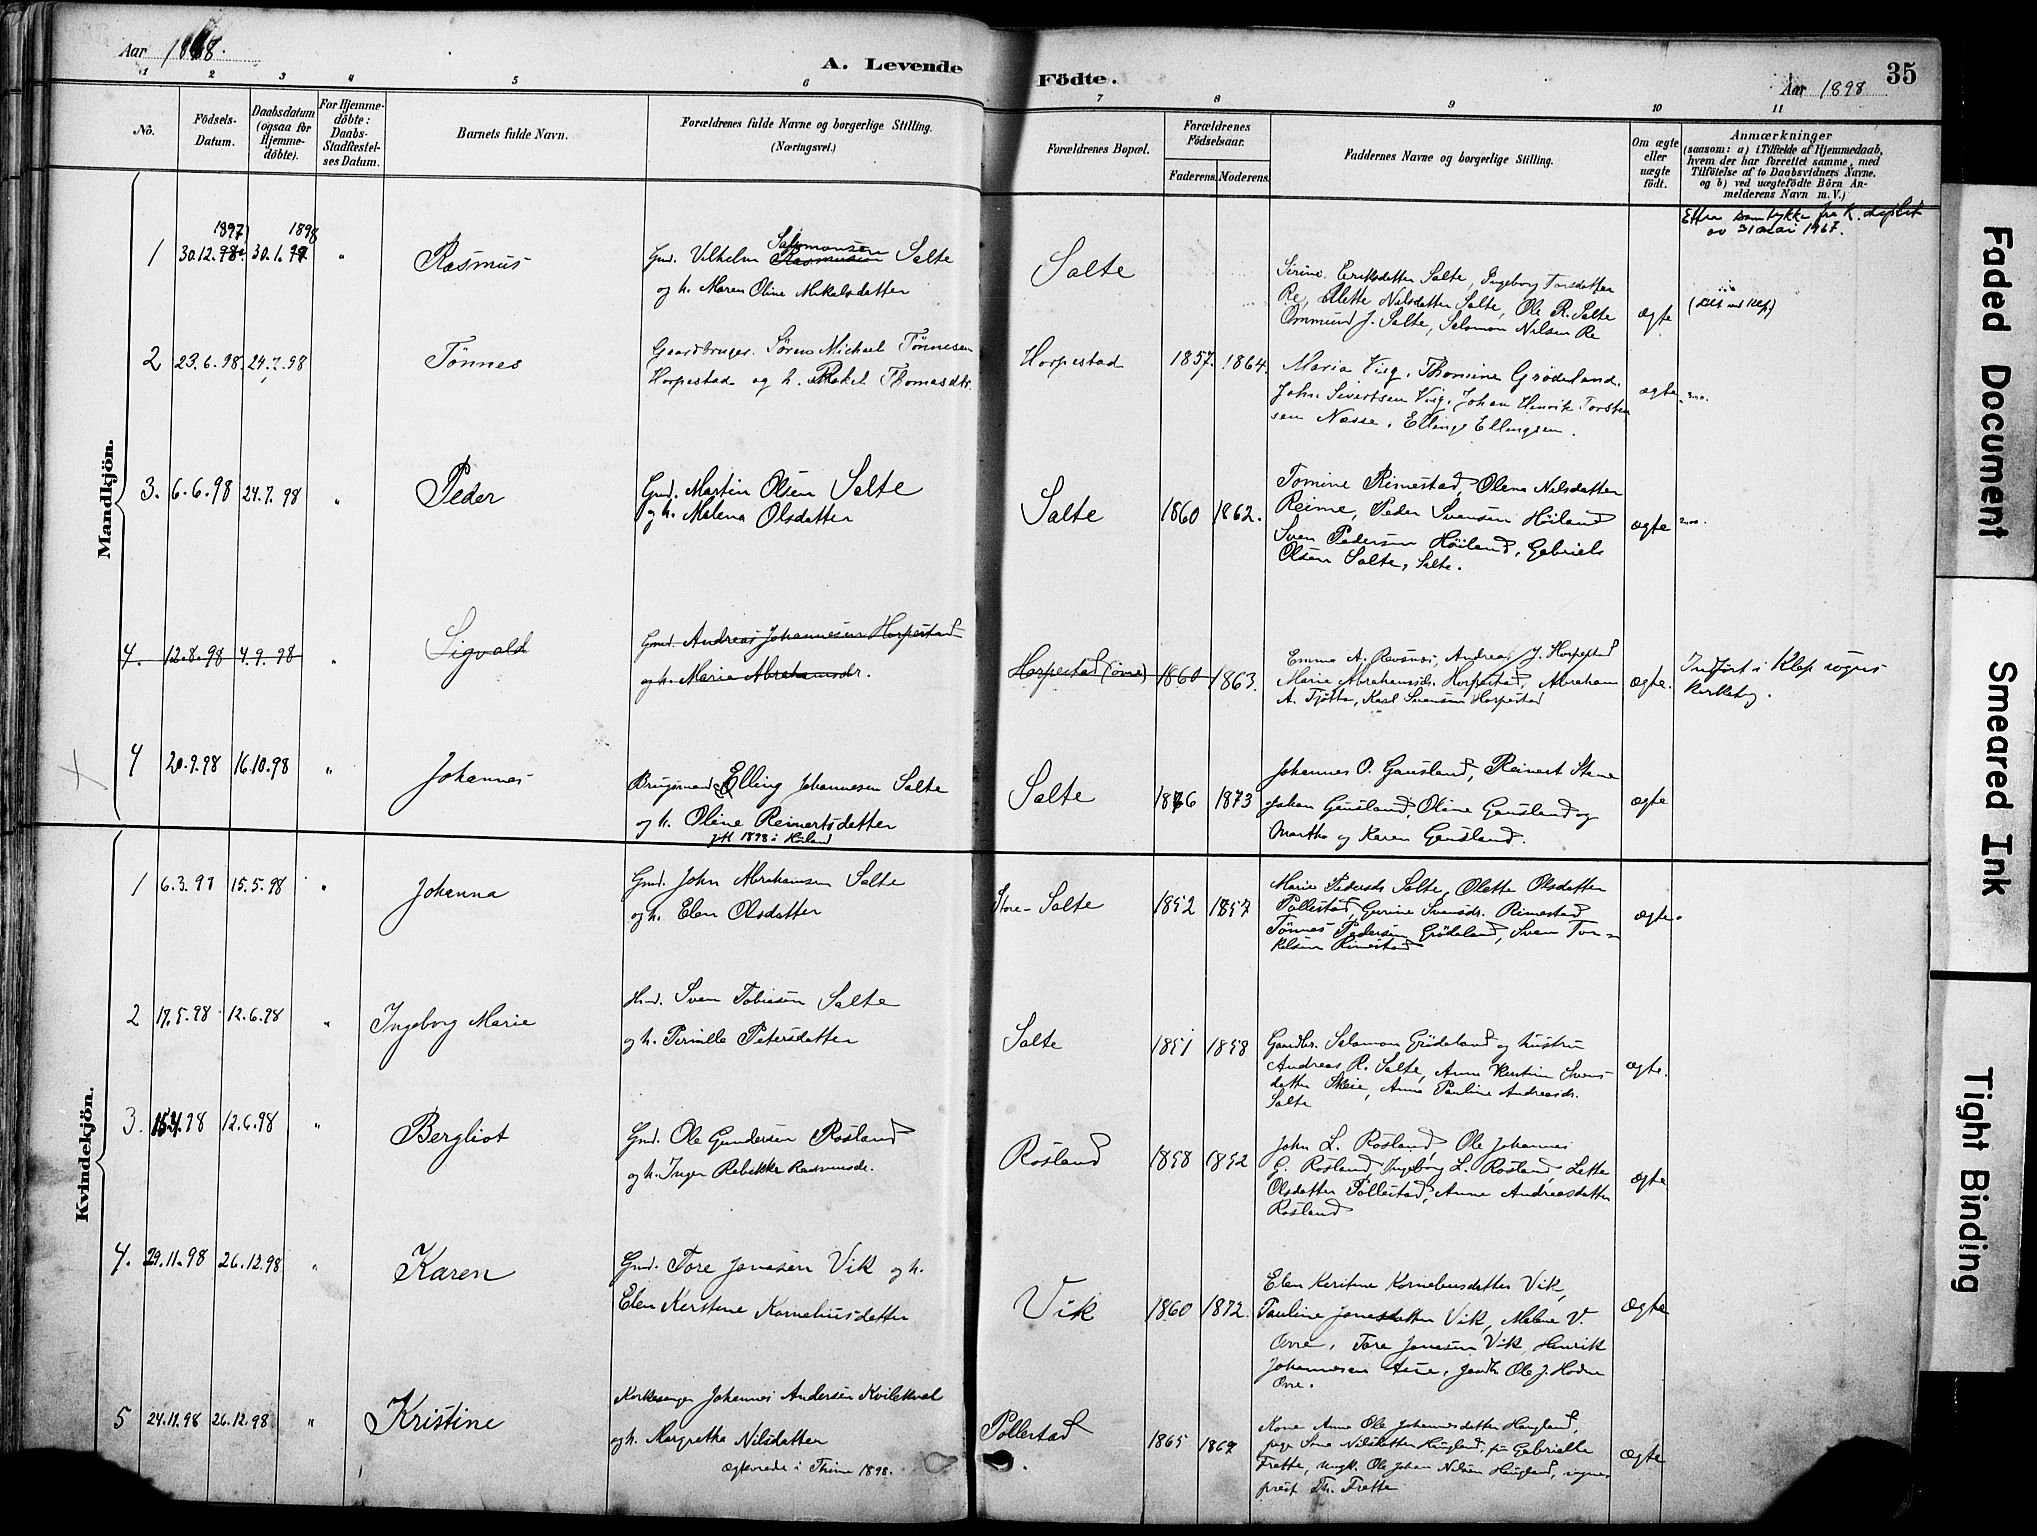 Aar 1898.
A. Levende Födte.
Aar 1898
35
1 2 3 4 5 6 7 8 9 10 11
No.
Födsels-Datum.
Daabsdatum (ogsaa for Hjemme-döbte).
For Hjemme-döbte: Daabs-Stadfæstel-ses Datum.
Barnets fulde Navn.
Forældrenes fulde Navne og borgerlige Stilling. (Næringsvei.)
Forældrenes Bopæl.
Forældrenes Födselsaar.
Faderens. Moderens.
Faddernes Navne og borgerlige Stilling.
Om ægte eller uægte födt.
Anmærkninger
(saasom: a) i Tilfælde af Hjemmedaab,
hvem der har forrettet samme, med
Tilföielse af to Daabsvidners Navne.
og b) ved uægtefödte Börn An-
melderens Navn m. V.)
Mandkjön.
1 30.12.98 1897 30.1.99 1898 " Rasmus
Gmd. Vilhelm Rasmussen Salomonsen Salte
og h. Maren Oline Mikalsdatter
Salte
Sirine Eriksdatter Salte, Ingeborg Torsdatter
Re, Olette Nilsdatter Salte, Ole R. Salte
Ommund J. Salte, Salomon Nilsen Re
ægte
Etter samtykke fra K. dep.
av 31 mai 1967.
2 23.6.98. 24.7.98 Tönnes
Gaardbruger Sören Michael Tönnesen
Horpestad og h. Rakel Thomasdtr.
Horpestad 1857. 1864.
Maria Vig, Thomine Grödeland.
John Sivertsen Vig, Johan Henrik Torsten
sen Næsse, Elling Ellingsen.
ægte
3. 6.6.98 24.7.98 " Peder
Gmd. Martin Olsen Salte
og h. Malena Olsdatter
Salte 1860 1862.
Tomine Rimestad, Olena Nilsdatter
Reime, Peder Svensen Höiland
Sven Pedersen Höiland, Gabriel
Olsen Salte, Salte.
ægte
4. 12.8.98 4.9.98 " Sigvald
Gmd. Andreas Johannesen Horpestad
og h. Maria Abrahamsdr.
Horpestad (övre) 1860 1863.
Emma A. , Andreas J. Horpestad
Marie Abrahamsdr. Horpestad, Abraham
A. Tjötta, Karl Svensen Horpestad
ægte.
Indfört i Klep sogns
kirkebog.
4 20.9.98 16.10.98 " Johannes
Brugsmand Elling Johannesen Salte
og h. Oline Reinertsdatter
gft 1898 i Höiland
Salte 1876 1873
Johannes O. Gausland, Reinert Stene
Johan Gausland, Oline Gausland og
Martha og Karen Gausland.
ægte
Kvindekjön.
1 6.3.97 15.5.98 " Johanna
Gmd. John Abrahamsen Salte
og h. Elen Olsdatter
Store-Salte 1852 1857
Marie Pedersdr Salte, Olette Olsdatter
Pollestad, Gurine Svensdr. Rimestad
Tönnes Pedersen Grödeland, Sven Tor-
kelsen Rimestad
ægte.
2 17.5.98 12.6.98 " Ingeborg Marie
Hmd. Sven Tobiasen Salte
og h. Pernille Petersdatter
Salte 1851 1858
Gaardbr. Salamon Grödeland og hustru
Andreas R. Salte, Anne Kerstine Svens-
datter Skeie, Anna Pauline Andreasdr.
Salte
ægte.
3. 98 12.6.98 " Bergliot
Gmd. Ole Gundersen Rosland
og h. Inger Rebekka Rasmusdr.
Rosland 1858 1852
John L. Rosland, Ole Johannes
G. Rosland, Ingeborg L. Rosland, Lette
Olsdatter Pollestad, Anne Andreasdatter
Rosland
ægte
4. 29.11.98 26.12.98 " Karen
Gmd. Tore Jonasen Vik og h.
Elen Kerstine Korneliusdatter
Vik 1860 1872.
Elen Kerstine Korneliusdatter Vik,
Pauline Jonasdatter Vik, Malene V.
Orre, Tore Jonasen Vik, Henrik
Johannesen , Ole J. Hodne
Orre.
ægte
5 24.11.98 26.12.98 " Kristine
Kirkesanger Johannes Andersen Kvilekval
og h. Margretha Nilsdatter
ægteviede i Thime 1898.
Pollestad 1865 1867
Kone Anne Ole Johannesdatter Haugland,
pige Nilsdatter Haugland, fru Gabrielle
Frette, ungk. Ole Johan Nilsen Haugland, sogne-
prest Th. Frette
ægte
Faded Document
Smeared Ink
Tight Binding